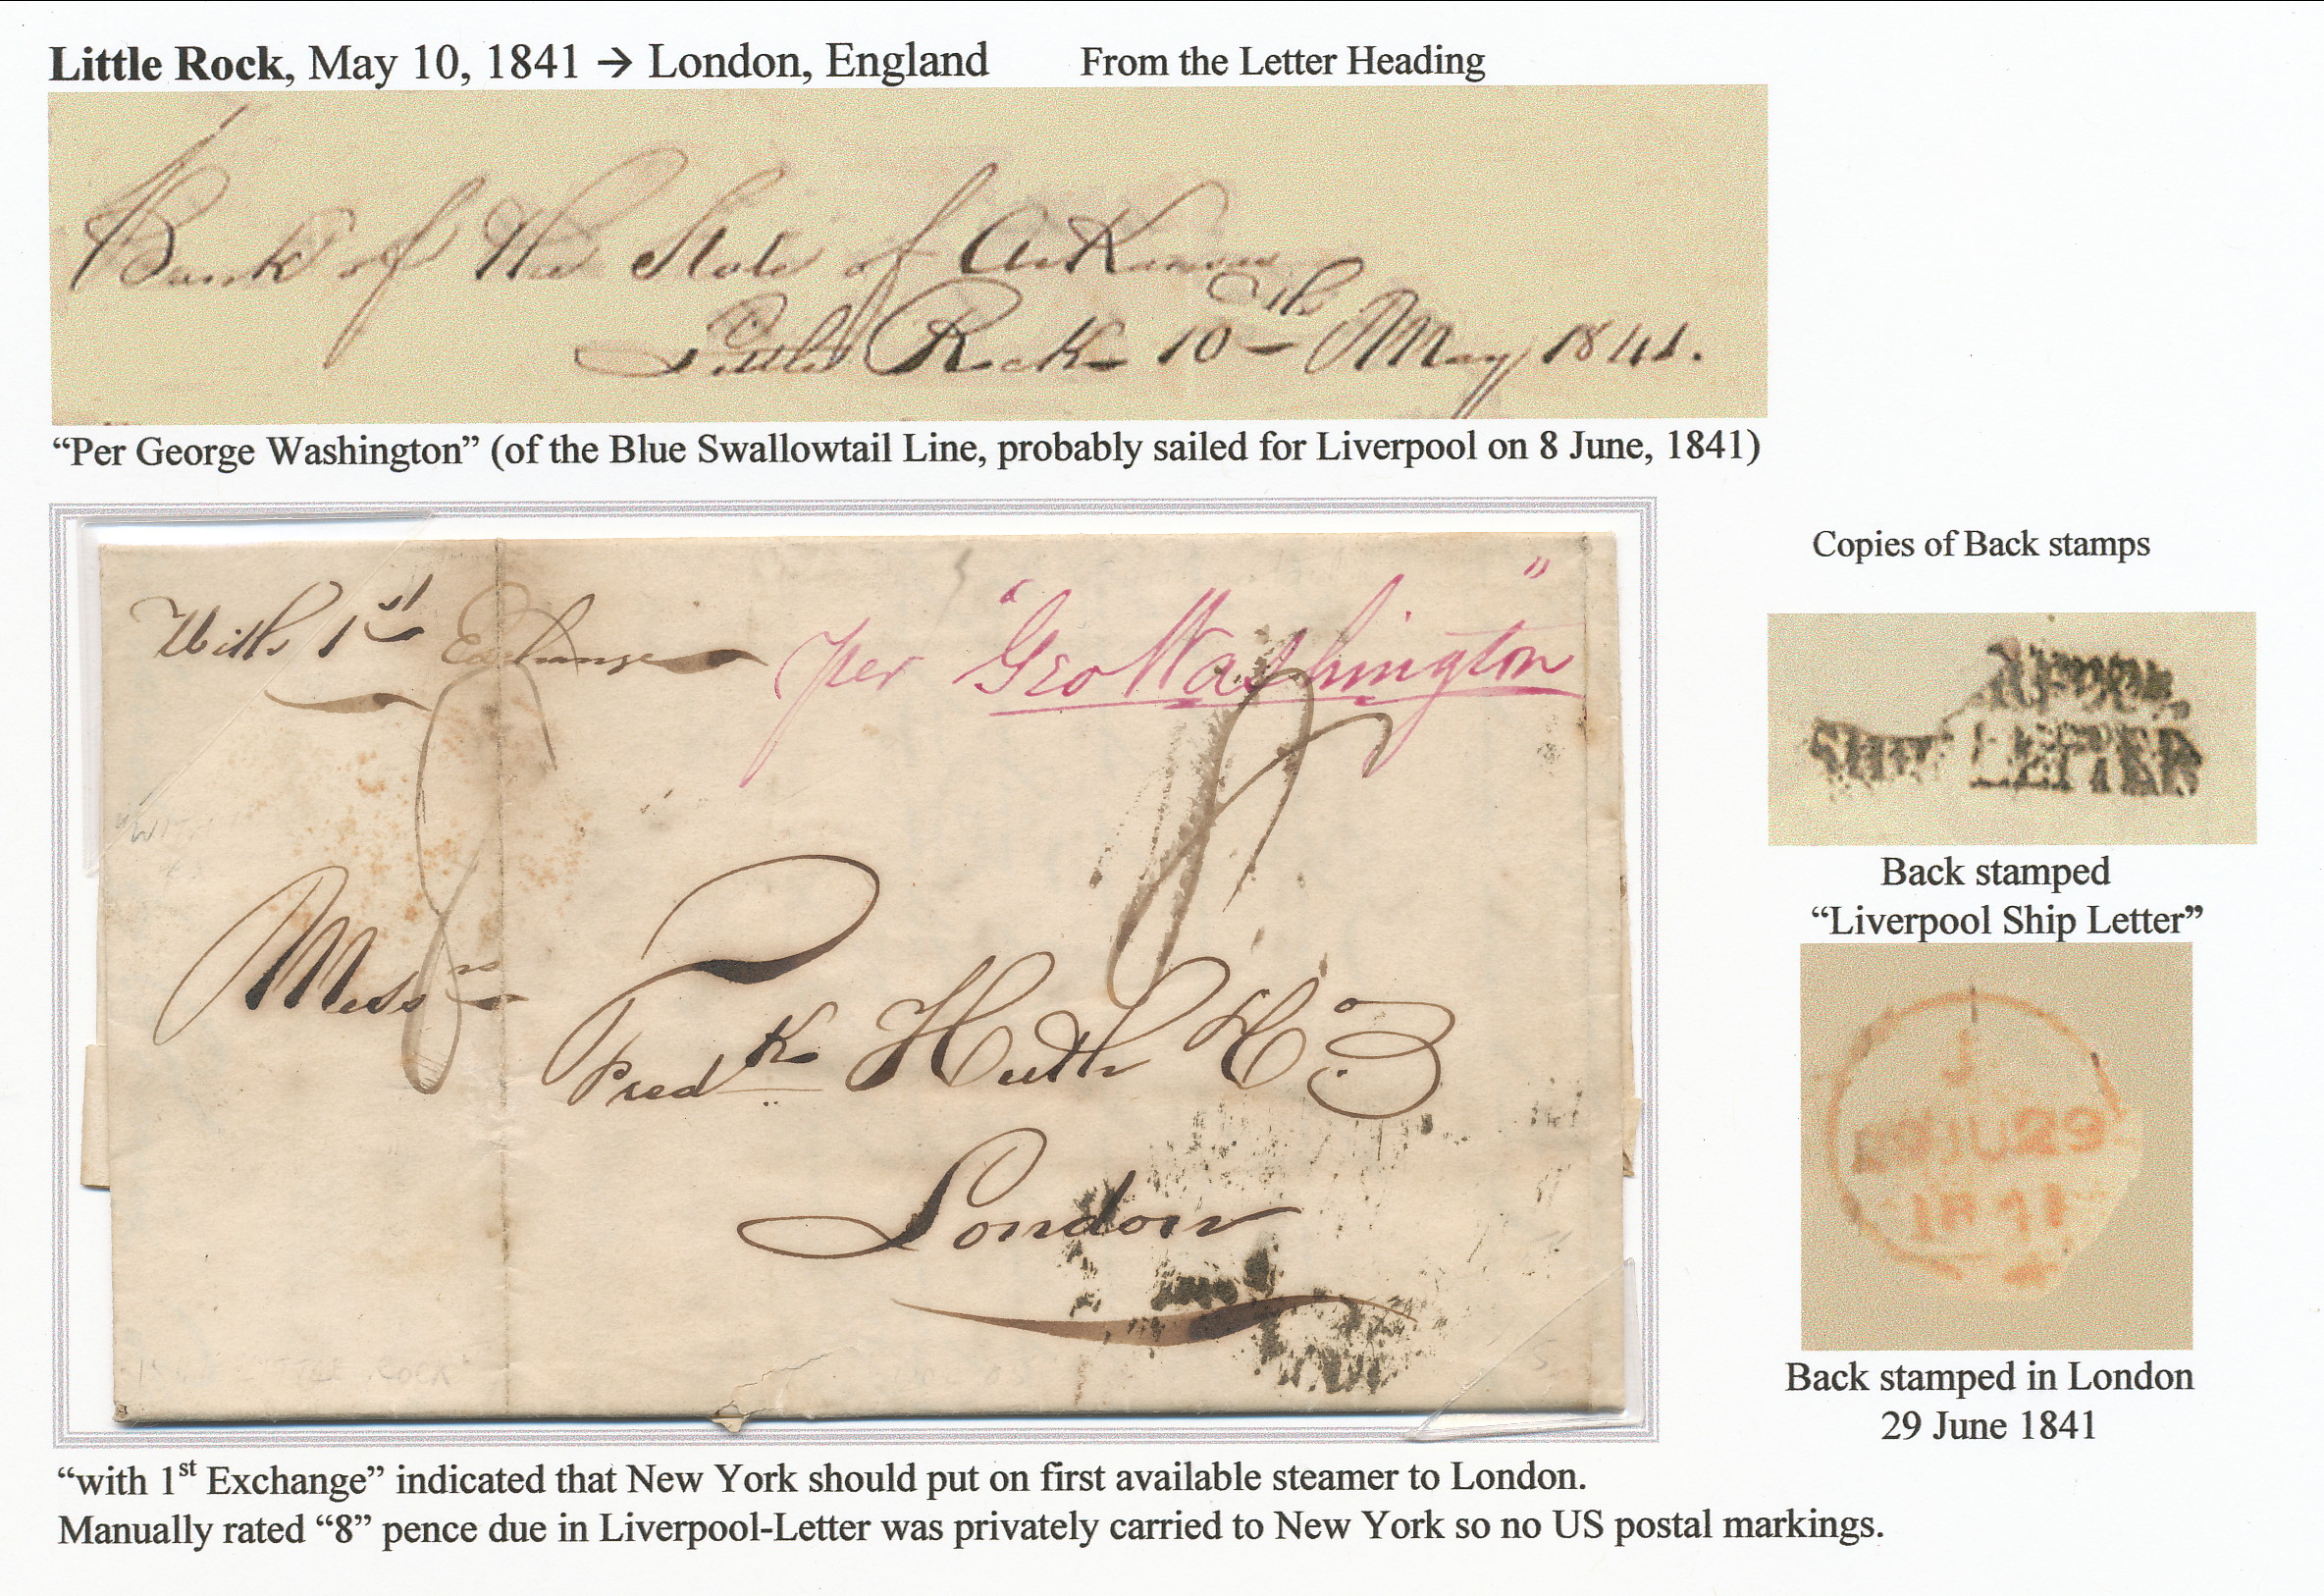 Little Rock, May 10, 1841 → London, England From the Letter Heading
Bank of the State of Arkansas
Little Rock 10th May 1841.
“Per George Washington” (of the Blue Swallowtail Line, probably sailed for Liverpool on 8 June, 1841)
With 1st Exchange per "Geo Washington"
8
Messrs
Fredk Huth & Co
London
LITTLE ROCK
Copies of Back stamps
SHIP LETTER
Back stamped
“Liverpool Ship Letter”
JU 29
1841
Back stamped in London
29 June 1841
“with 1st Exchange” indicated that New York should put on first available steamer to London.
Manually rated “8” pence due in Liverpool-Letter was privately carried to New York so no US postal markings.